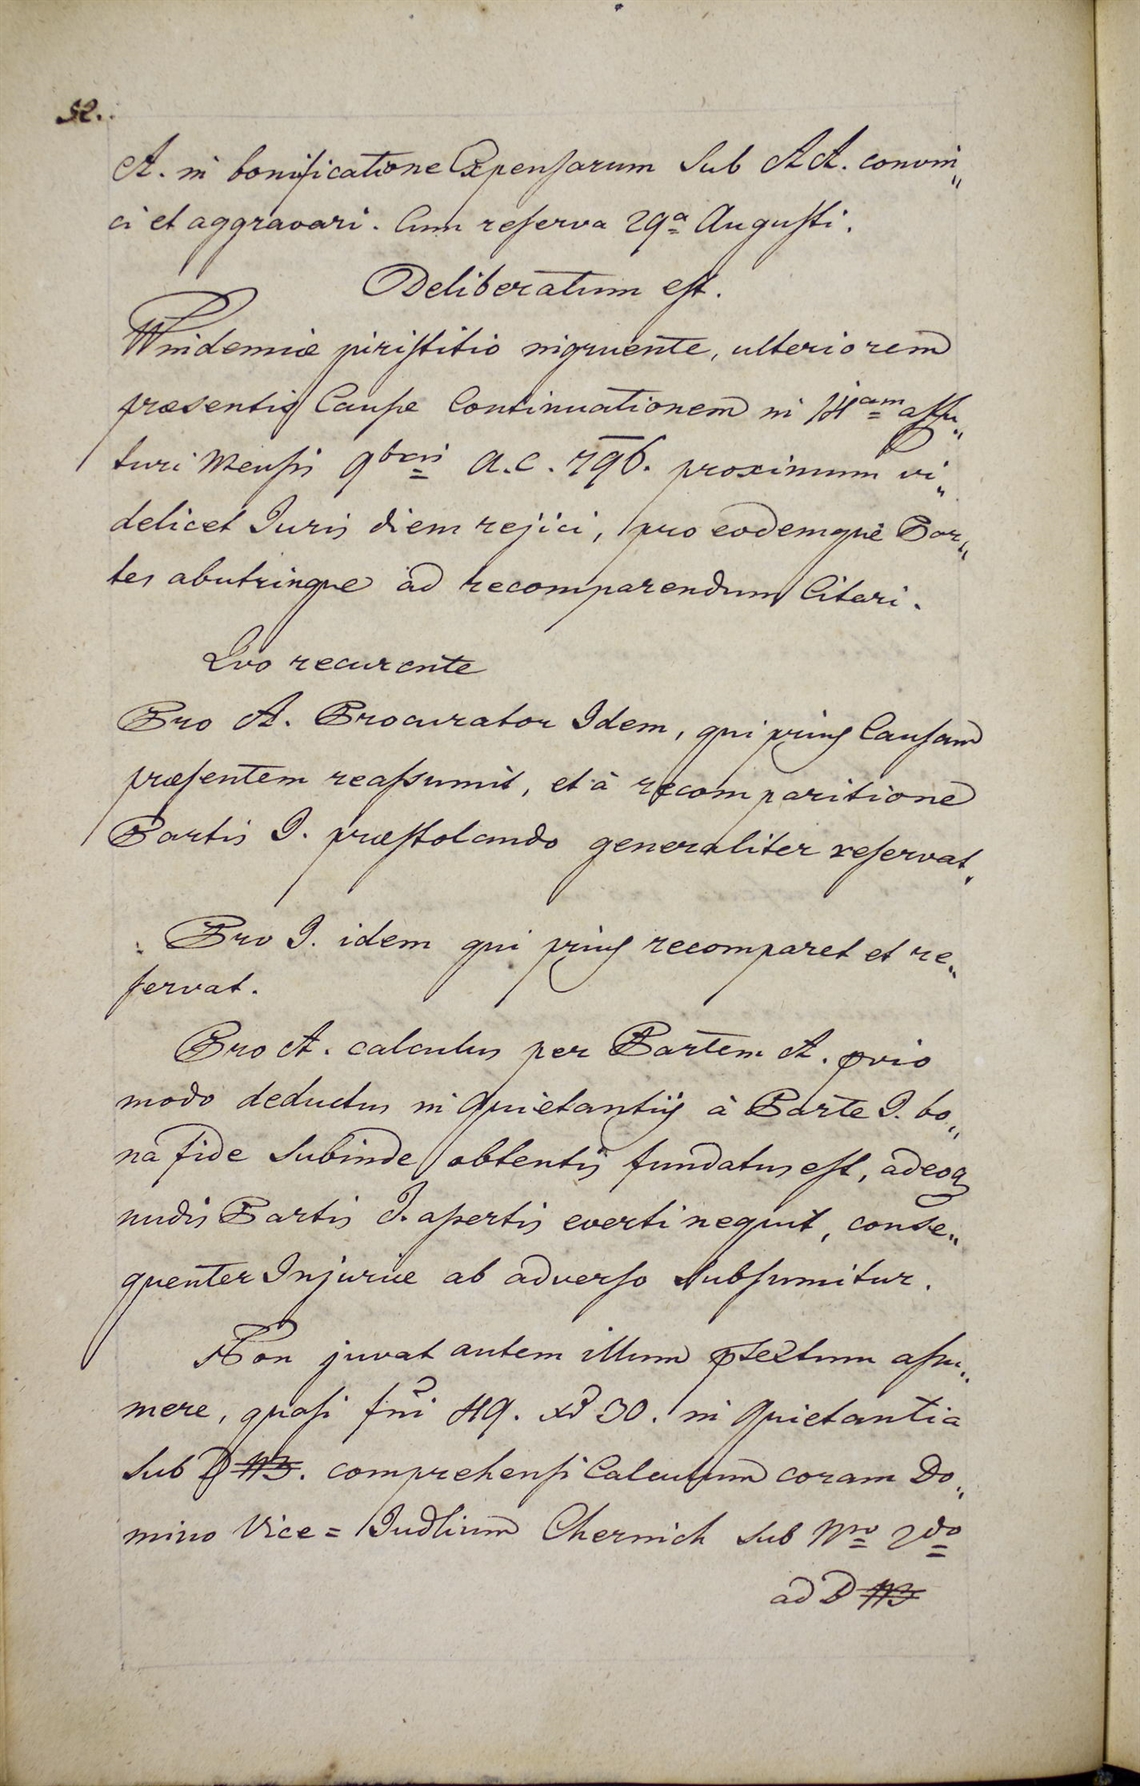 52.
A. in bonificatione Expensarum sub AA. convin„
ci et aggravari. Cum reserva 29a Augusti.
Deliberatum est.
Vindemiæ piristitio ingruente, ulteriorem
præsentis Causæ Continuationem in 14am affu„
turi Mensis 9bris a.c. 796. proximum vi„
delicet Juris diem rejici, pro eodemque Par„
tes abutrinque ad recomparendum Citari.
Quo recurente
Pro A. Procurator Idem, qui prius Causam
præsentem reassumit, et à recomparitione
Partis I. præstolando generaliter reservat.
Pro I. idem qui prius recomparet et re„
servat.
Pro A. calculus per Partem A. prio
modo deductus in Quietantiis à Parte I. bo„
na fide subinde obtentis fundatus est, adeoq
nudis Partis I. assertis everti nequit, conse„
quenter Injuriæ ab adverso subsumitur.
Non juvat autem illum ptextum assu„
mere, quasi fni 49. xr 30. in Quietantia
sub D. comprehensi Calculum coram Do„
mino Vice = Judlium Chernich sub Nro 2do
ad D